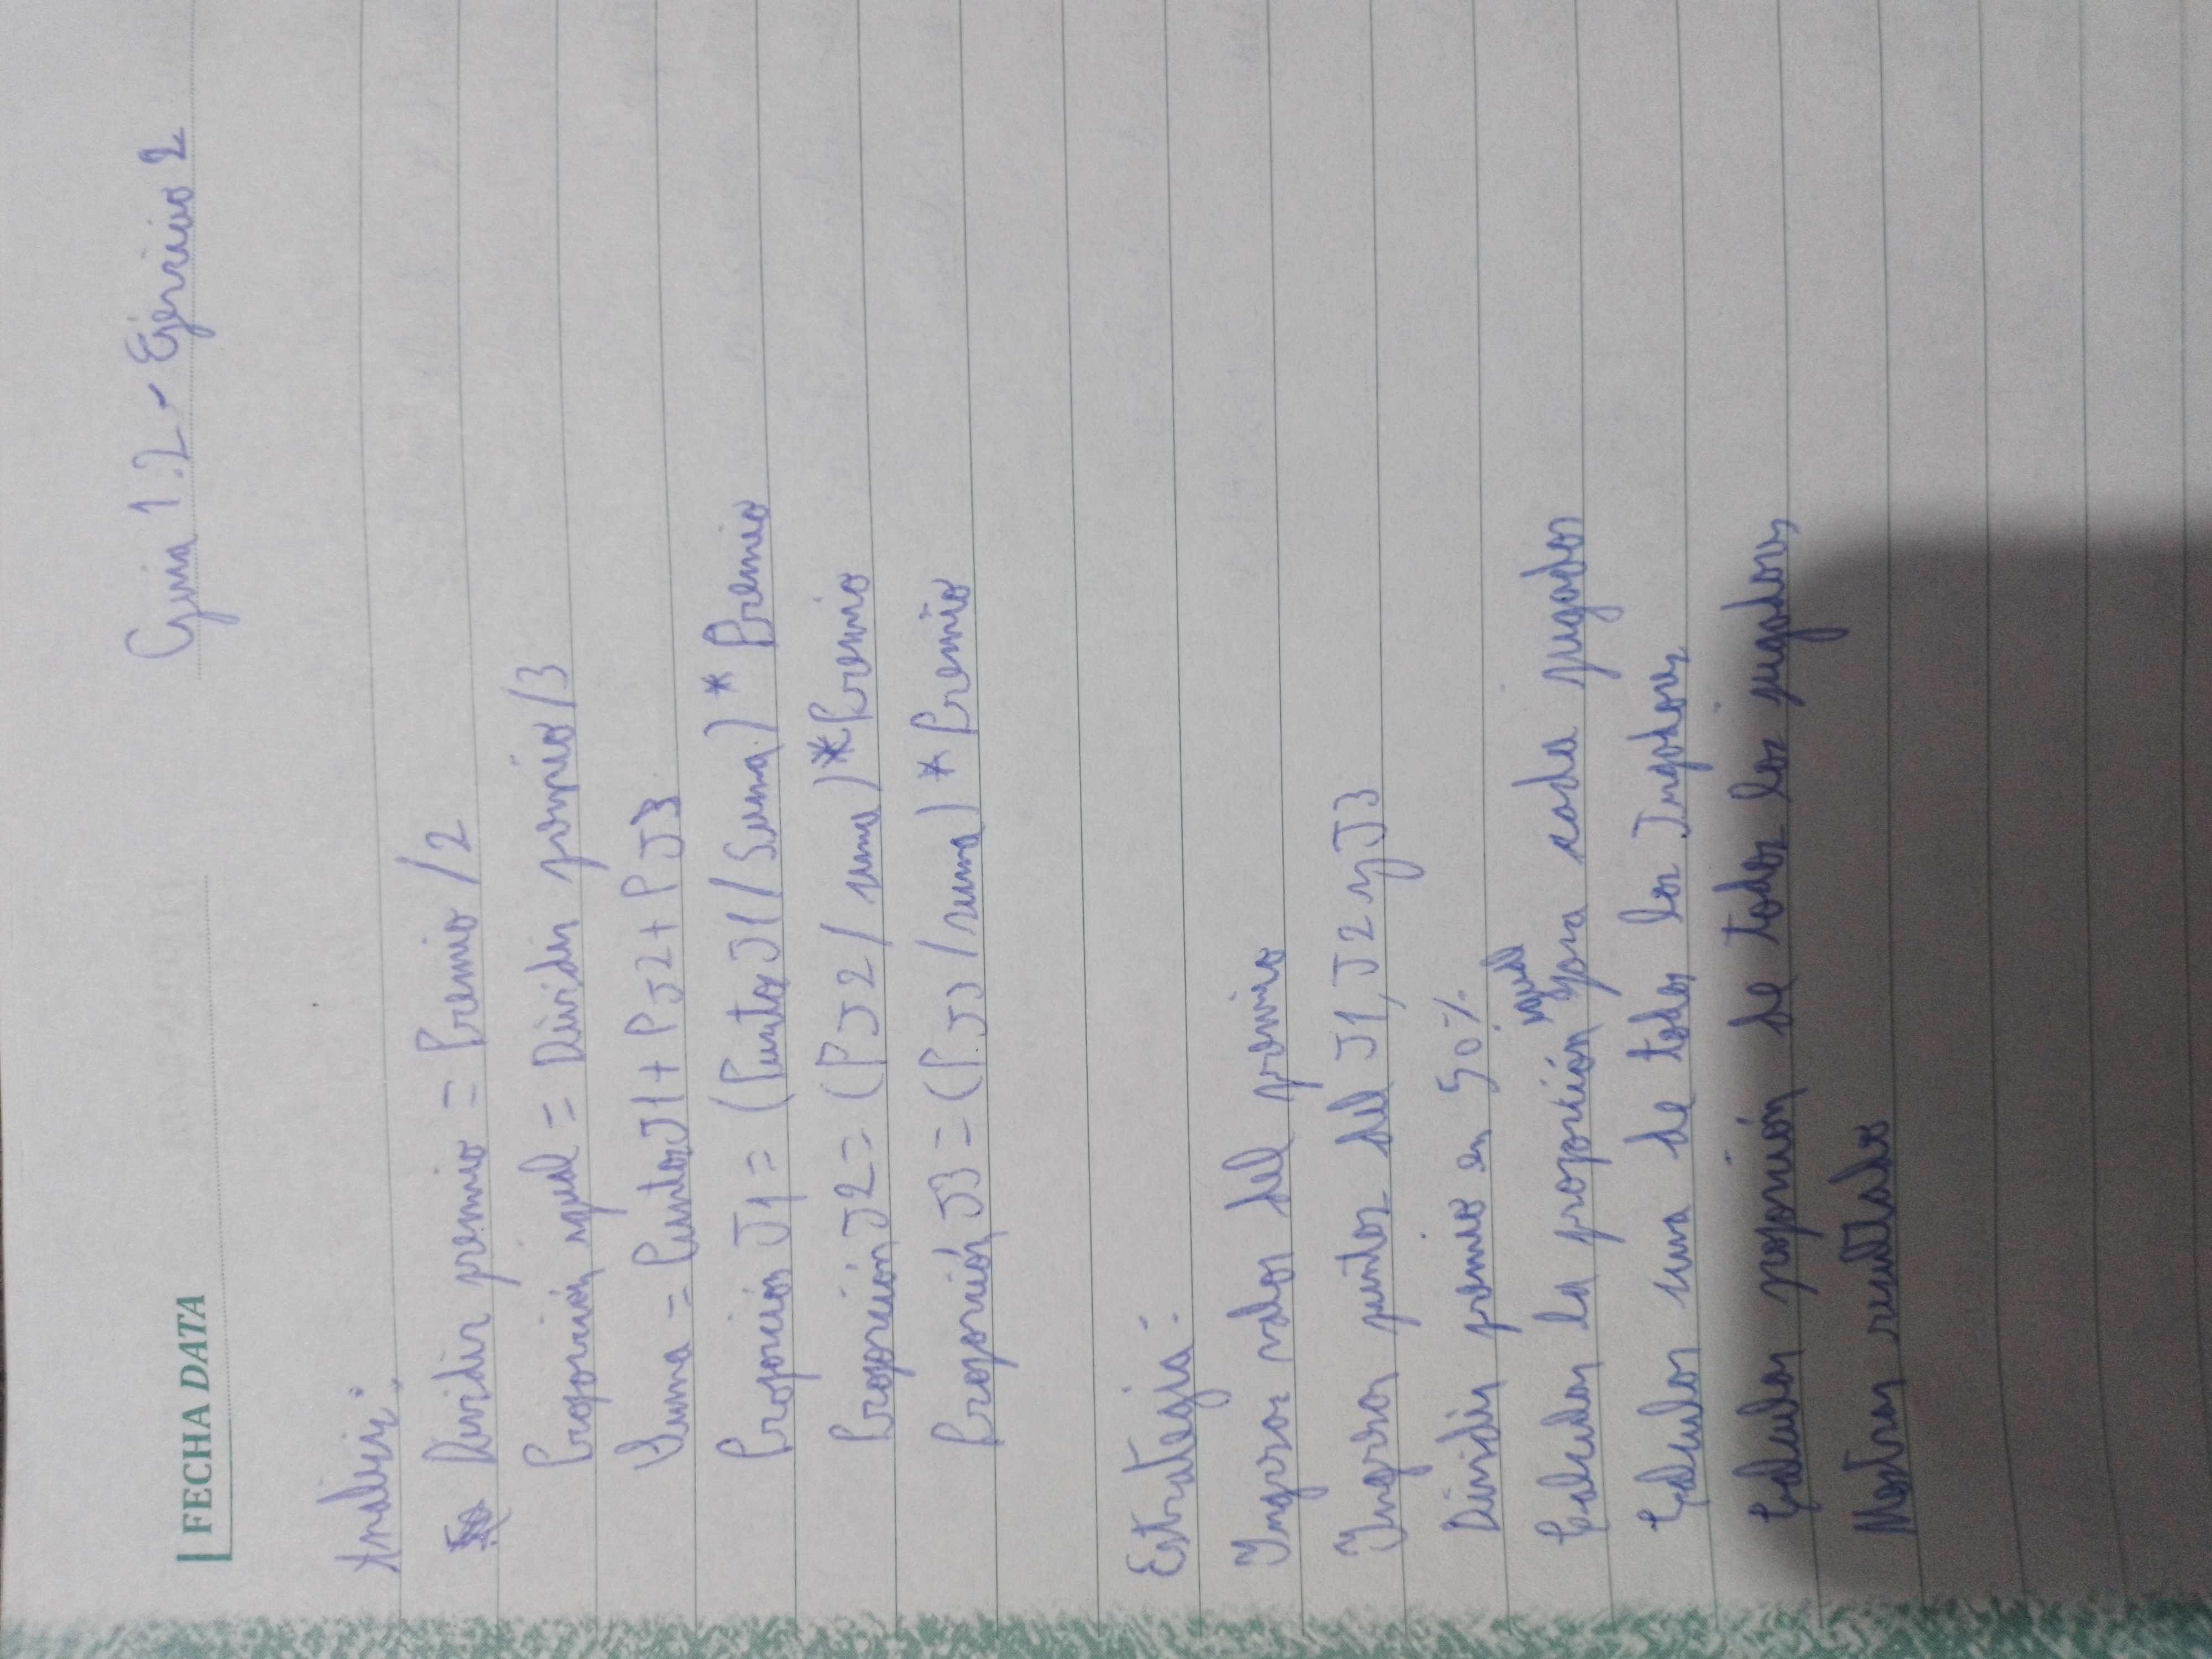 FECHA DATA
Guia 1.2 - Ejercicio 2
Analisis:
Dividir premio = Premio / 2
Proporción igual = Dividir premio / 3
Suma = Puntos J1 + P J2 + P J3
Proporción J1 = (Puntos J1 / Suma) * Premio
Proporción J2 = (P J2 / suma) * Premio
Proporción J3 = (P. J3 / suma) * Premio
Estrategia:
Ingresar valor del premio
Ingresar puntos del J1, J2 y J3
Dividir premio en 50%
Calcular la proporción igual para cada jugador
Calcular suma de todos los Jugadores
Calcular proporción de todos los jugadores
Mostrar resultado